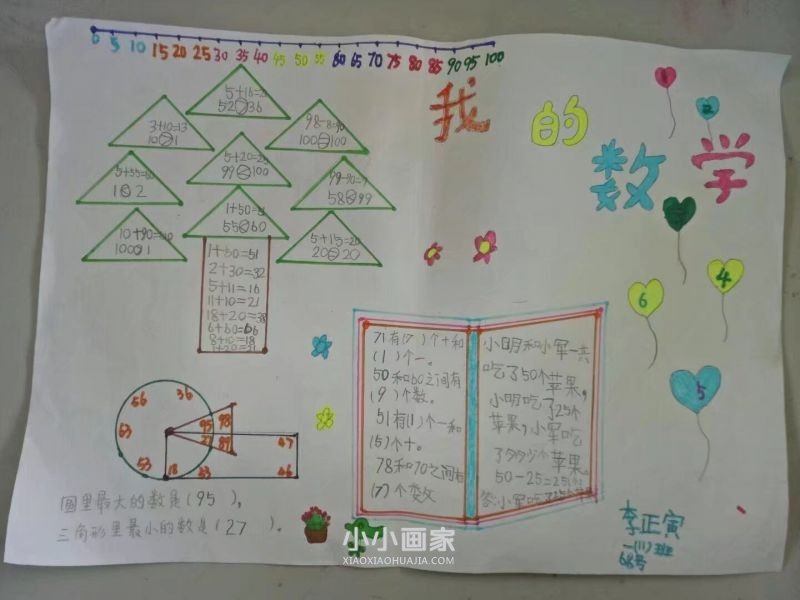 0 5 10 15 20 25 30 35 40 45 50 55 60 65 70 75 80 85 90 95 100
我的数学
1
2
3
4
6
5
52>36
3+10=13
10>1
100=100
5+20=25
99<100
1<2
58<99
55<60
100>1
5+15=20
20=20
2+30=32
5+11=16
11+10=21
18+20=38
8+10=18
56 36
63
95 98
27 89
53
18 33
47
46
圆里最大的数是(95)。
三角形里最小的数是(27)。
71有(7)个十和
(1)个一。
50和60之间有
(9)个数。
51有(1)个一和
(5)个十。
78和70之间有
(7)个数
小明和小军一共
吃了50个苹果,
小明吃了25个
苹果,小军吃
了多少个苹果。
50-25=25(个)
答:小军吃了25个苹果
李正寅
一(11)班
68号
小小画家
XIAOXIAOHUAJIA.COM